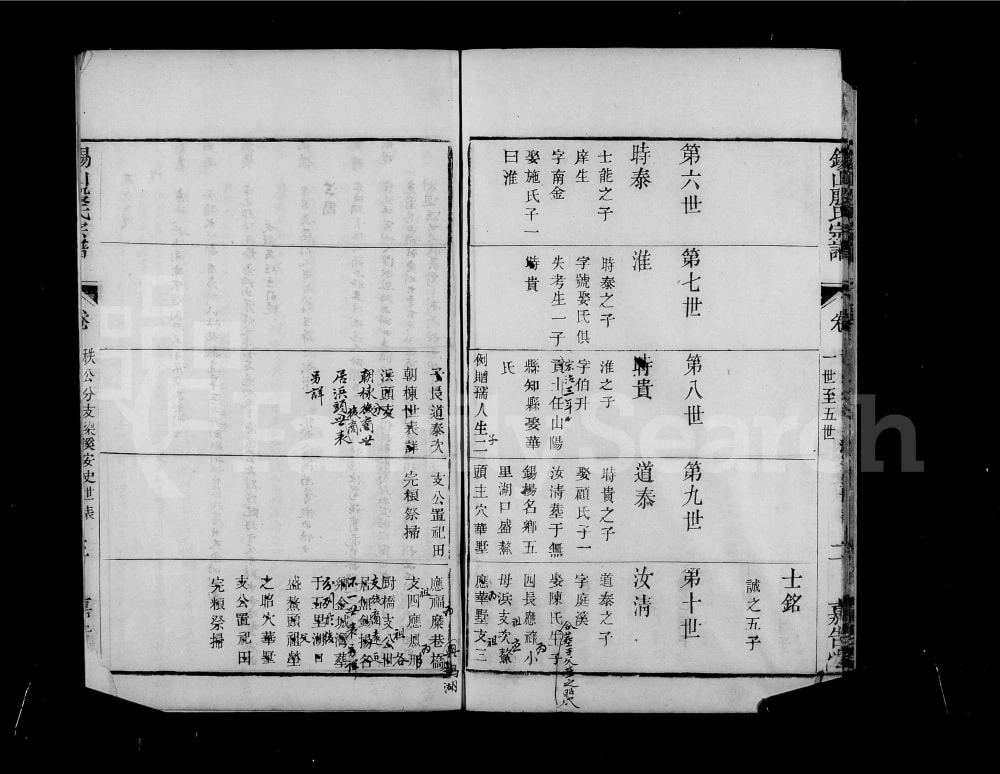 錫山殷氏宗譜
卷
一世至五世
二
嘉告堂
士銘
誠之五子
第六世
時泰
士能之子
庠生
字南金
娶施氏子一
曰淮
第七世
淮
時泰之子
字號娶氏俱
失考生一子
時貴
第八世
時貴
淮之子
字伯升
貢士任山陽
縣知縣娶華
氏
例贈孺人生二
子
子長道泰次
朝棟世表詳
浜頭支
居浜頭世表
另詳
第九世
道泰
時貴之子
娶顧氏子一
汝清葬于無
錫揚名鄉五
里湖口盛熬
頭主穴華墅
支公置祀田
完粮祭掃
第十世
汝清
道泰之子
字庭溪
娶陳氏生子
四長應祿小
母浜支次熬
應華墅支三
應福糜巷橋
支四應鳳邢
厨橋支公世
居無錫揚名
鄉金城灣葬
于五里湖口
盛熬頭祖塋
之昭穴華墅
支公置祀田
完粮祭掃
錫山殷氏宗譜
卷
秩公分支梁溪安史世表